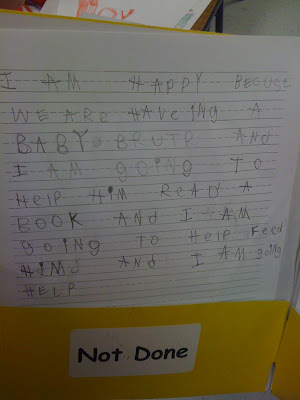 I AM HAPPY BECUSE
WE ARE HAVEiNG A
BABY BRUTR AND
I AM gOiNG TO
HELP HiM READ A
BOOK AND I AM
gOiNG TO HELP FEED
HiMd AND I AM gOiNg
HELP
Not Done